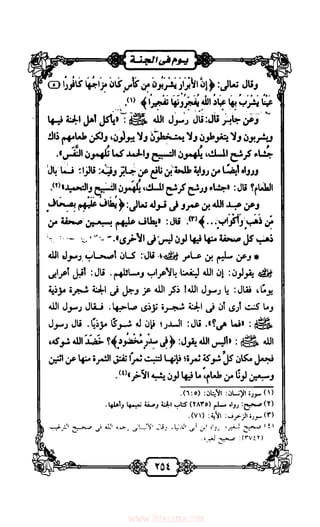 يوم في الجنة
وقال تعالى: ﴿إِنَّ الأَبْرَارَ يَشْرَبُونَ مِن كَأْسٍ كَانَ مِزَاجُهَا كَافُورًا (٥)
عَيْنًا يَشْرَبُ بِهَا عِبَادُ اللَّهِ يُفَجِّرُونَهَا تَفْجِيرًا﴾ (١).
وعن جابر قال: قال رسول الله ﷺ: «يأكل أهل الجنة فيها
ويشربون ولا يتغوطون ولا يمتخطون ولا يبولون، ولكن طعامهم ذاك
جُشاء كرشح المسك، يلهمون التسبيح والحمد كما تلهمون النفس».
ورواه أيضًا من رواية طلحة بن نافع عن جابر وفيه: قالوا: فما بال
الطعام؟ قال: «جشاء ورشح كرشح المسك، يلهمون التسبيح والتحميد»(٢).
وعن عبد الله بن عمرو في قوله تعالى: ﴿يُطَافُ عَلَيْهِم بِصِحَافٍ
مِّن ذَهَبٍ وَأَكْوَابٍ...﴾(٣). قال: «يطاف عليهم بسبعين صحفة من
ذهب كل صحفة منها فيها لون ليس في الأخرى».
* وعن سليم بن عامر قال: كان أصحاب رسول الله
ﷺ يقولون: إن الله لينفعنا بالأعراب ومسائلهم. قال: أقبل أعرابي
يومًا، فقال: يا رسول الله! ذكر الله عز وجل في الجنة شجرة مؤذية
وما كنت أرى أن في الجنة شجرة تؤذي صاحبها. فقال رسول الله
ﷺ: «فما هي؟». قال: السدر؛ فإن له شوكًا مؤذيًا. قال رسول
الله ﷺ: «أليس الله يقول: ﴿فِي سِدْرٍ مَّخْضُودٍ﴾؟ خَضَدَ الله شوكه،
فجعل مكان كل شوكة ثمرة؛ فإنها لتنبت ثمرًا تفتق الثمرة منها عن اثنين
وسبعين لونًا من طعام؛ ما فيها لون يشبه الآخر»(٤).
(١) سورة الإنسان: الآيتان: (٥:٦).
(٢) صحيح: رواه مسلم (٢٨٣٥) كتاب الجنة وصفة نعيمها وأهلها.
(٣) سورة الزخرف: الآية: (٧١).
(٤) صحيح لغيره: رواه ابن أبي الدنيا، وقال الألباني رحمه الله في صحيح الترغيب
(٣٧٤٢): صحيح لغيره.
٢٥٤
www.ibtesama.com